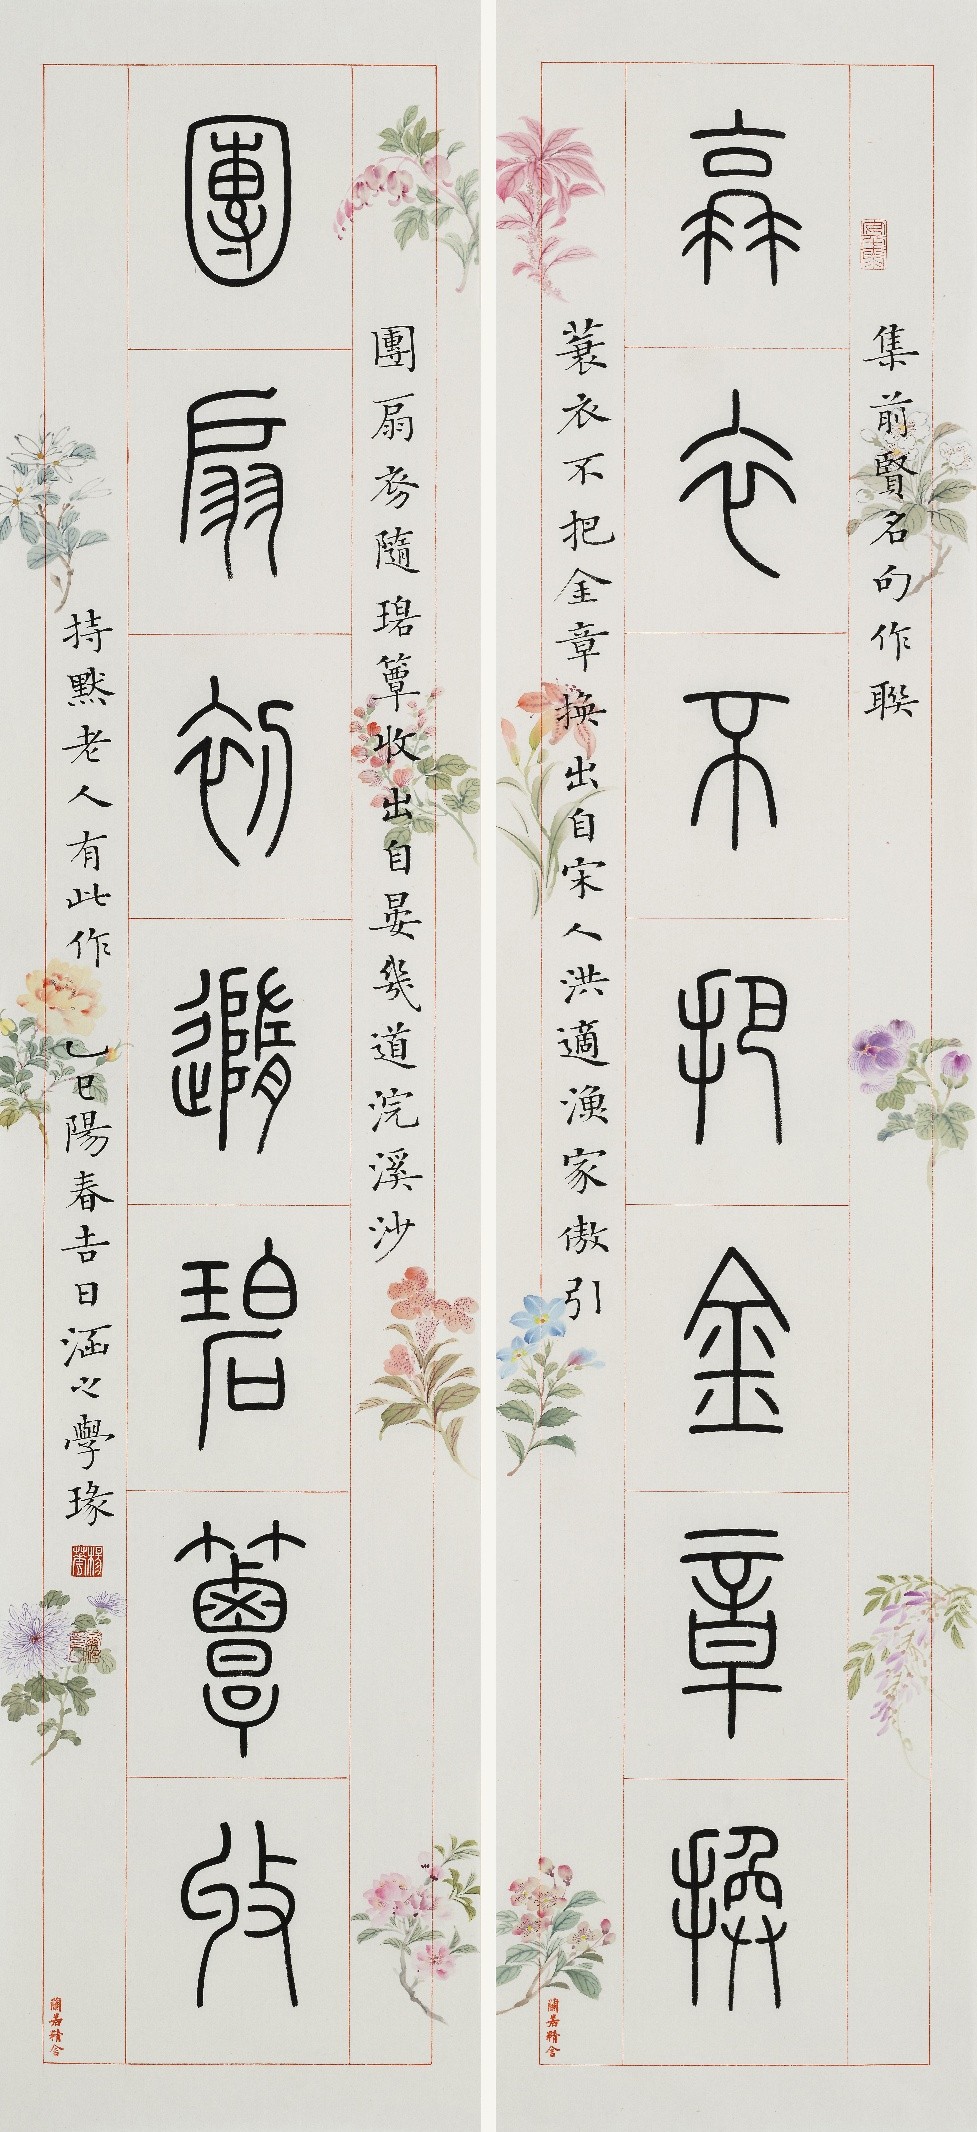 集前賢名句作聯
蓑衣不把金章換
蓑衣不把金章換出自宋人洪適漁家傲引
蘭若精舍
團扇初隨碧簟收出自晏幾道浣溪沙
團扇初隨碧簟收
持默老人有此作 乙巳陽春吉日涵之學瑑
蘭若精舍